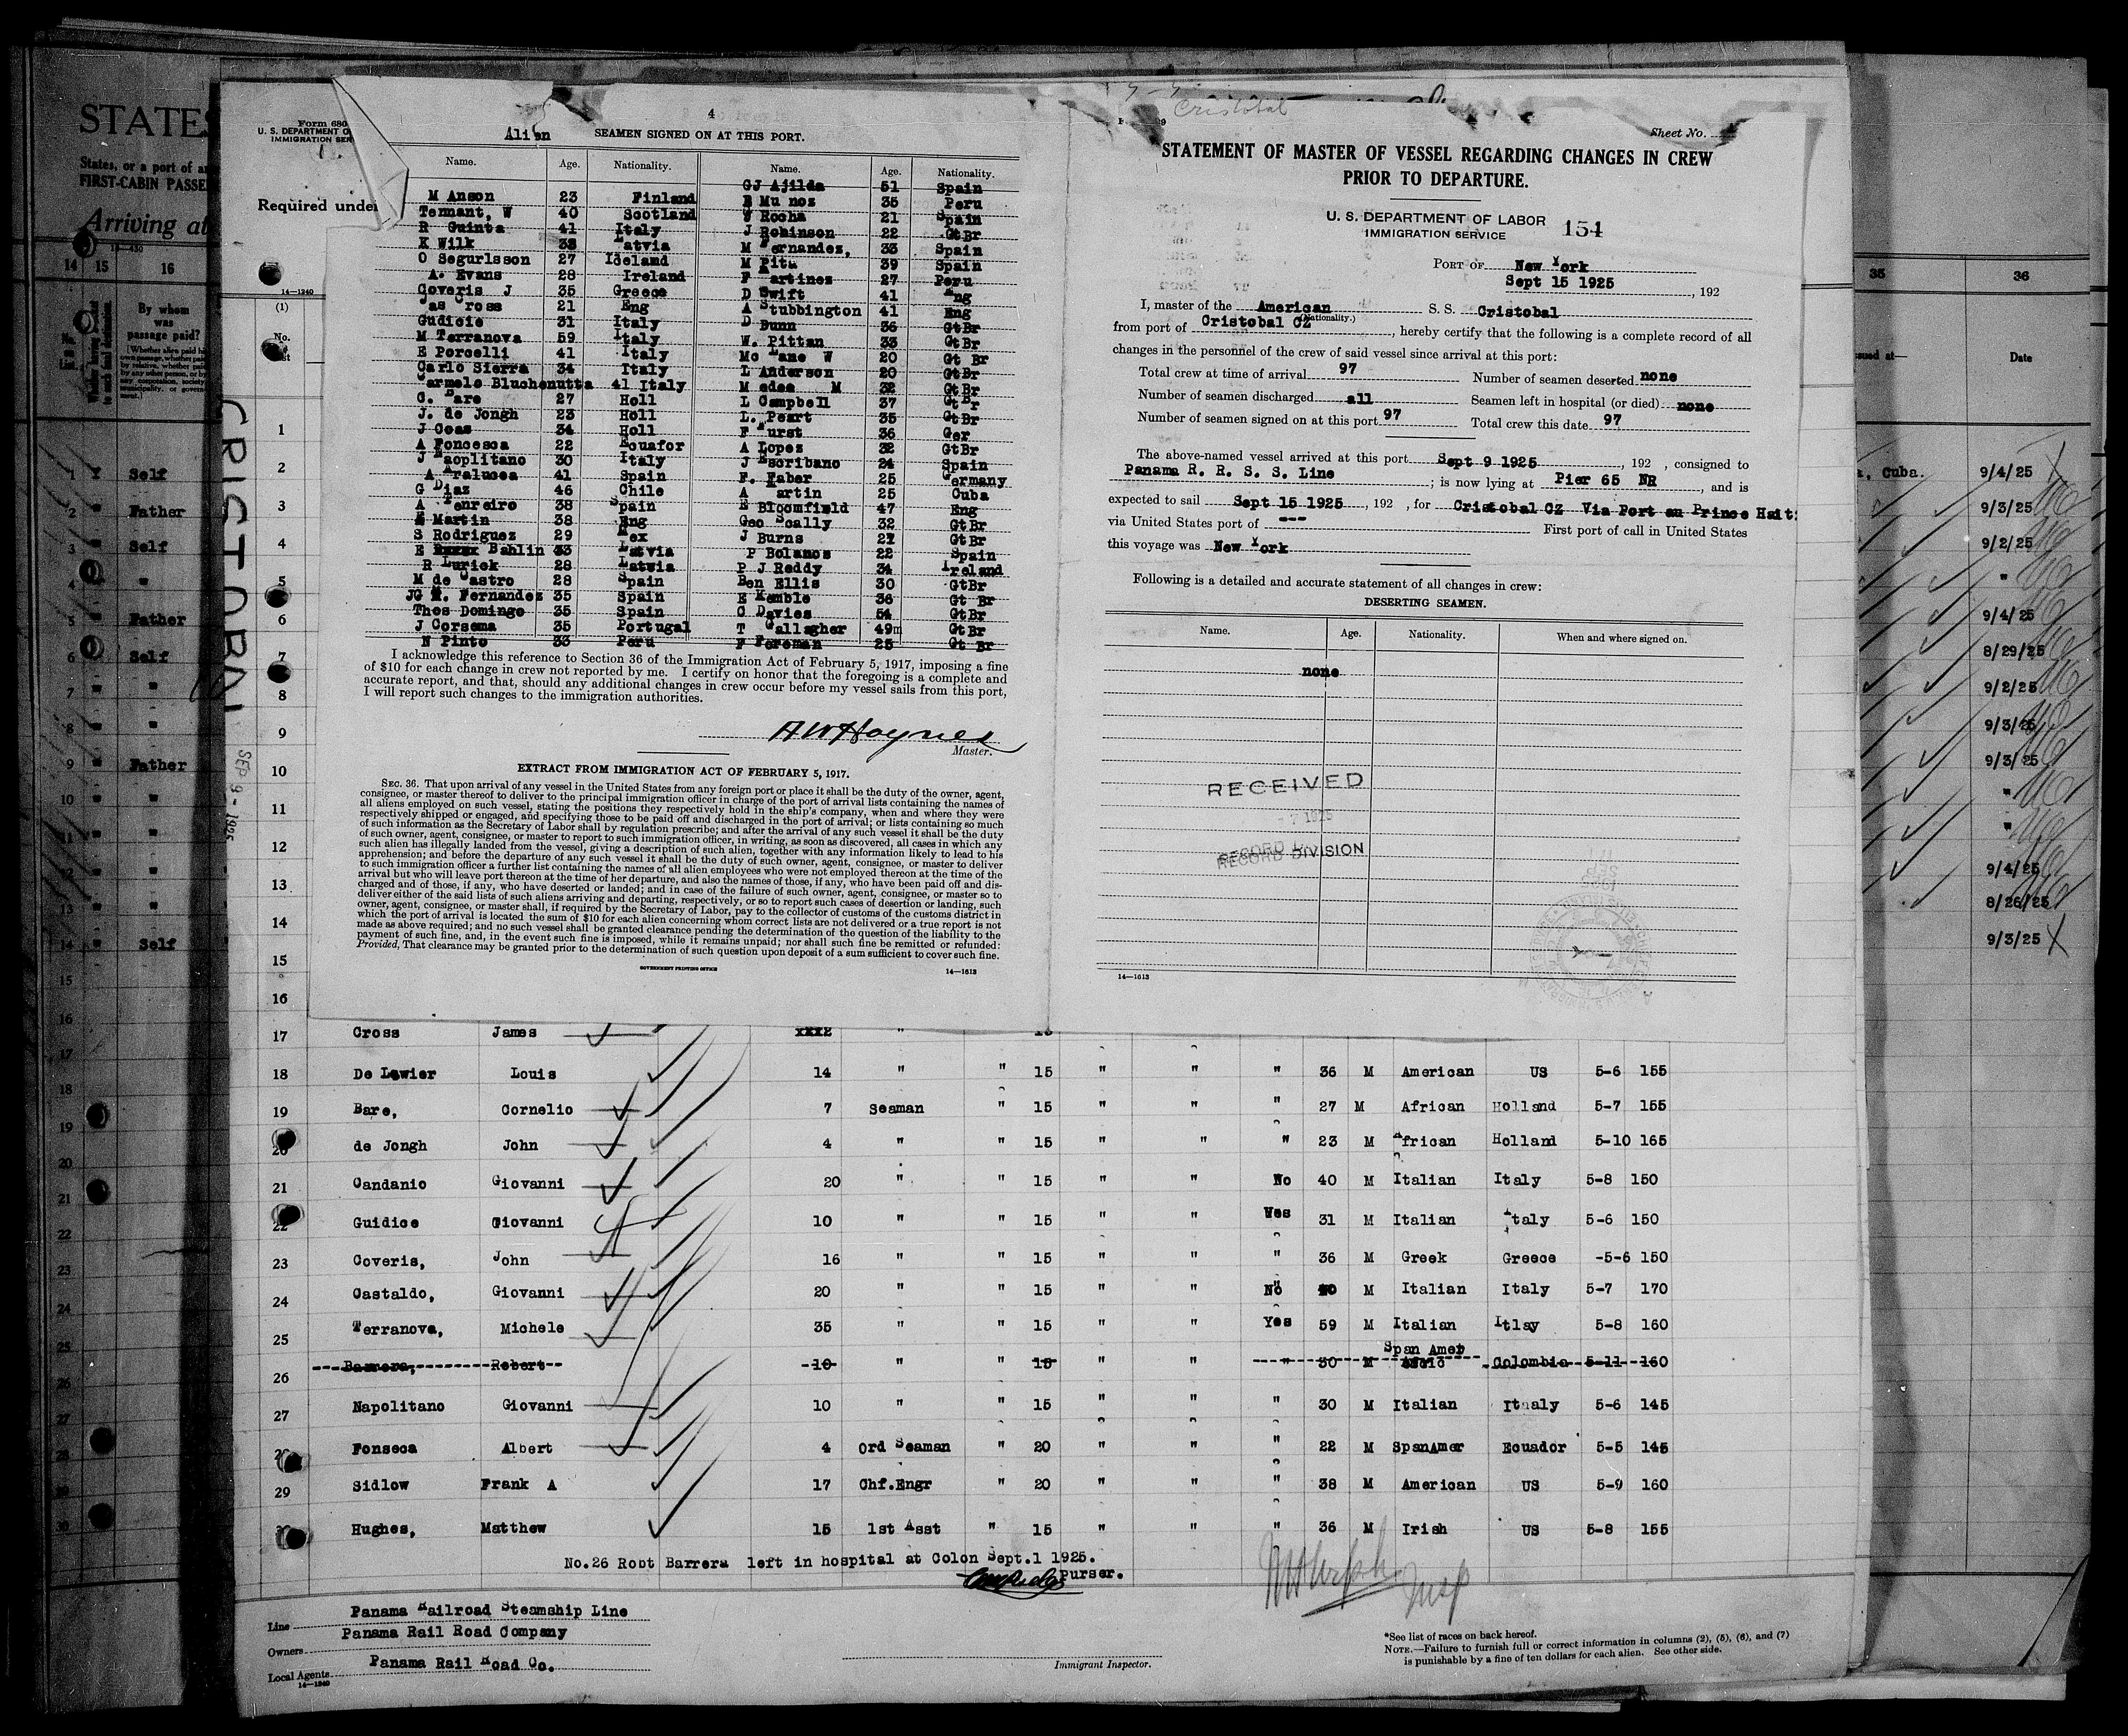 STATES
States, or a port of a
FIRST-CABIN PASSE
Arriving at
14 15 16
By whom was passage paid?
1 Self
2 Father
3 Self
4 "
5 Father
6 Self
7 "
8 "
9 Father
10 "
11 "
12 "
13 "
14 " Self
15
16
17
18
19
20
21
22
23
24
25
26
27
28
29
30
Form 680
U. S. DEPARTMENT O
IMMIGRATION SER
Required unde
14—1240
(1)
No.
CRISTOBAL
SEP 9 - 1925
4
Alien SEAMEN SIGNED ON AT THIS PORT.
Name. Age. Nationality. Name. Age. Nationality.
M Anson 23 Finland
Tennant, W 40 Scotland
R Guinta 41 Italy
K Wilk 38 Latvia
O Segurlsson 27 Iceland
A. Evans 28 Ireland
Coveris J 35 Greece
Jas Cross 21 Eng
Gudicie 31 Italy
M Terranova 59 Italy
E Porcelli 41 Italy
Carlo Sierra 34 Italy
Carmelo Bluchenutta 41 Italy
C. Bare 27 Holl
J. de Jongh 23 Holl
J Coas 34 Holl
A Foncesca 22 Ecuafor
J Naoplitano 30 Italy
A Aralucea 41 Spain
G Diaz 46 Chile
A Tenreiro 38 Spain
E Martin 38 Eng
S Rodriguez 29 Mex
E Bahlin 43 Latvia
R Lurick 28 Latvia
M de Castro 28 Spain
JG M. Fernandez 35 Spain
Thos Domingo 35 Spain
J Corsema 35 Portugal
N Pinto 33 Peru
GJ Ajilda 51 Spain
E Mu nos 35 Peru
V Rocha 21 Spain
J Robinson 22 GtBr
M Fernandez, 33 Spain
M Pita 39 Spain
F Martinez 27 Peru
D Swift 41 Eng
A Stubbington 41 Eng
D Dunn 36 GtBr
W. Pittan 33 GtBr
Mc Lane W 20 Gt Br
L Anderson 20 GtBr
M edea M 32 GtBr
L Campbell 37 GtBr
L. Peart 35 GtBr
F Hurst 36 Ger
A Lopez 32 GtBr
J Escribano 24 Spain
F. Faber 25 Germany
A Martin 25 Cuba
E Bloomfield 47 Eng
Geo Scally 32 GtBr
J Burns 27 GtBr
P Bolanos 22 Spain
P J Reddy 34 Ireland
Ben Ellis 30 GtBr
E Kemble 36 Gt Br
C Davies 54 GtBr
T Gallagher 49m GtBr
F Foreman 25 Gt Br
I acknowledge this reference to Section 36 of the Immigration Act of February 5, 1917, imposing a fine
of $10 for each change in crew not reported by me. I certify on honor that the foregoing is a complete and
accurate report, and that, should any additional changes in crew occur before my vessel sails from this port,
I will report such changes to the immigration authorities.
A W Haynes
Master.
EXTRACT FROM IMMIGRATION ACT OF FEBRUARY 5, 1917.
SEC. 36. That upon arrival of any vessel in the United States from any foreign port or place it shall be the duty of the owner, agent,
consignee, or master thereof to deliver to the principal immigration officer in charge of the port of arrival lists containing the names of
all aliens employed on such vessel, stating the positions they respectively hold in the ship's company, when and where they were
respectively shipped or engaged, and specifying those to be paid off and discharged in the port of arrival; or lists containing so much
of such information as the Secretary of Labor shall by regulation prescribe; and after the arrival of any such vessel it shall be the duty
of such owner, agent, consignee, or master to report to such immigration officer, in writing, as soon as discovered, all cases in which any
such alien has illegally landed from the vessel, giving a description of such alien, together with any information likely to lead to his
apprehension; and before the departure of any such vessel it shall be the duty of such owner, agent, consignee, or master to deliver
to such immigration officer a further list containing the names of all alien employees who were not employed thereon at the time of the
arrival but who will leave port thereon at the time of her departure, and also the names of those, if any, who have been paid off and dis-
charged and of those, if any, who have deserted or landed; and in case of the failure of such owner, agent, consignee, or master so to
deliver either of the said lists of such aliens arriving and departing, respectively, or so to report such cases of desertion or landing, such
owner, agent, consignee, or master shall, if required by the Secretary of Labor, pay to the collector of customs of the customs district in
which the port of arrival is located the sum of $10 for each alien concerning whom correct lists are not delivered or a true report is not
made as above required; and no such vessel shall be granted clearance pending the determination of the question of the liability to the
payment of such fine, and, in the event such fine is imposed, while it remains unpaid; nor shall such fine be remitted or refunded:
Provided, That clearance may be granted prior to the determination of such question upon deposit of a sum sufficient to cover such fine.
GOVERNMENT PRINTING OFFICE 14—1613
Cristobal
Sheet No.
STATEMENT OF MASTER OF VESSEL REGARDING CHANGES IN CREW
PRIOR TO DEPARTURE.
U. S. DEPARTMENT OF LABOR
IMMIGRATION SERVICE 154
PORT OF New York
Sept 15 1925, 192
I, master of the American S. S. Cristobal
(Nationality.)
from port of Cristobal CZ, hereby certify that the following is a complete record of all
changes in the personnel of the crew of said vessel since arrival at this port:
Total crew at time of arrival 97 Number of seamen deserted none
Number of seamen discharged all Seamen left in hospital (or died) none
Number of seamen signed on at this port 97 Total crew this date 97
The above-named vessel arrived at this port Sept 9 1925, 192 , consigned to
Panama R. R. S. S. Line; is now lying at Pier 65 NR, and is
expected to sail Sept 15 1925, 192 , for Cristobal CZ Via Port au Prince Hait:
via United States port of --- First port of call in United States
this voyage was New York
Following is a detailed and accurate statement of all changes in crew:
DESERTING SEAMEN.
Name. Age. Nationality. When and where signed on.
none
RECEIVED
7 1925
RECORD DIVISION
14—1613
1
2
3
4
5
6
7
8
9
10
11
12
13
14
15
16
17 Cross James xxx2 "
18 De Lewier Louis 14 " " 15 " " " 36 M American US 5-6 155
19 Bare, Cornelio 7 Seaman " 15 " " " 27 M African Holland 5-7 155
20 de Jongh John 4 " " 15 " " " 23 M African Holland 5-10 165
21 Candanio Giovanni 20 " " 15 " " No 40 M Italian Italy 5-8 150
22 Guidice Giovanni 10 " " 15 " " Yes 31 M Italian Italy 5-6 150
23 Coveris, John 16 " " 15 " " " 36 M Greek Greece -5-6 150
24 Castaldo, Giovanni 20 " " 15 " " No 40 M Italian Italy 5-7 170
25 Terranova, Michele 35 " " 15 " " Yes 59 M Italian Itlay 5-8 160
26 Barrera, Robert 10 " " 15 " " " 30 M Span Amer Colombia 5-11 160
27 Napolitano Giovanni 10 " " 15 " " " 30 M Italian Itaaly 5-6 145
28 Fonseca Albert 4 Ord Seaman " 20 " " " 22 M SpanAmer Ecuador 5-5 145
29 Sidlow Frank A 17 Chf.Engr " 20 " " " 38 M American US 5-9 160
30 Hughes, Matthew 15 1st Asst " 15 " " " 36 M Irish US 5-8 155
No.26 Robt Barrera left in hospital at Colon Sept.1 1925.
Purser.
Line Panama Railroad Steamship Line
Owners Panama Rail Road Company
Local Agents Panama Rail Road Co.
14—1240
Immigrant Inspector.
*See list of races on back hereof.
NOTE.—Failure to furnish full or correct information in columns (2), (5), (6), and (7)
is punishable by a fine of ten dollars for each alien. See other side.
35 36
sued at— Date
, Cuba. 9/4/25
9/3/25
9/2/25
"
9/4/25
8/29/25
9/2/25
9/3/25
9/3/25
"
"
9/4/25
8/26/25
9/3/25